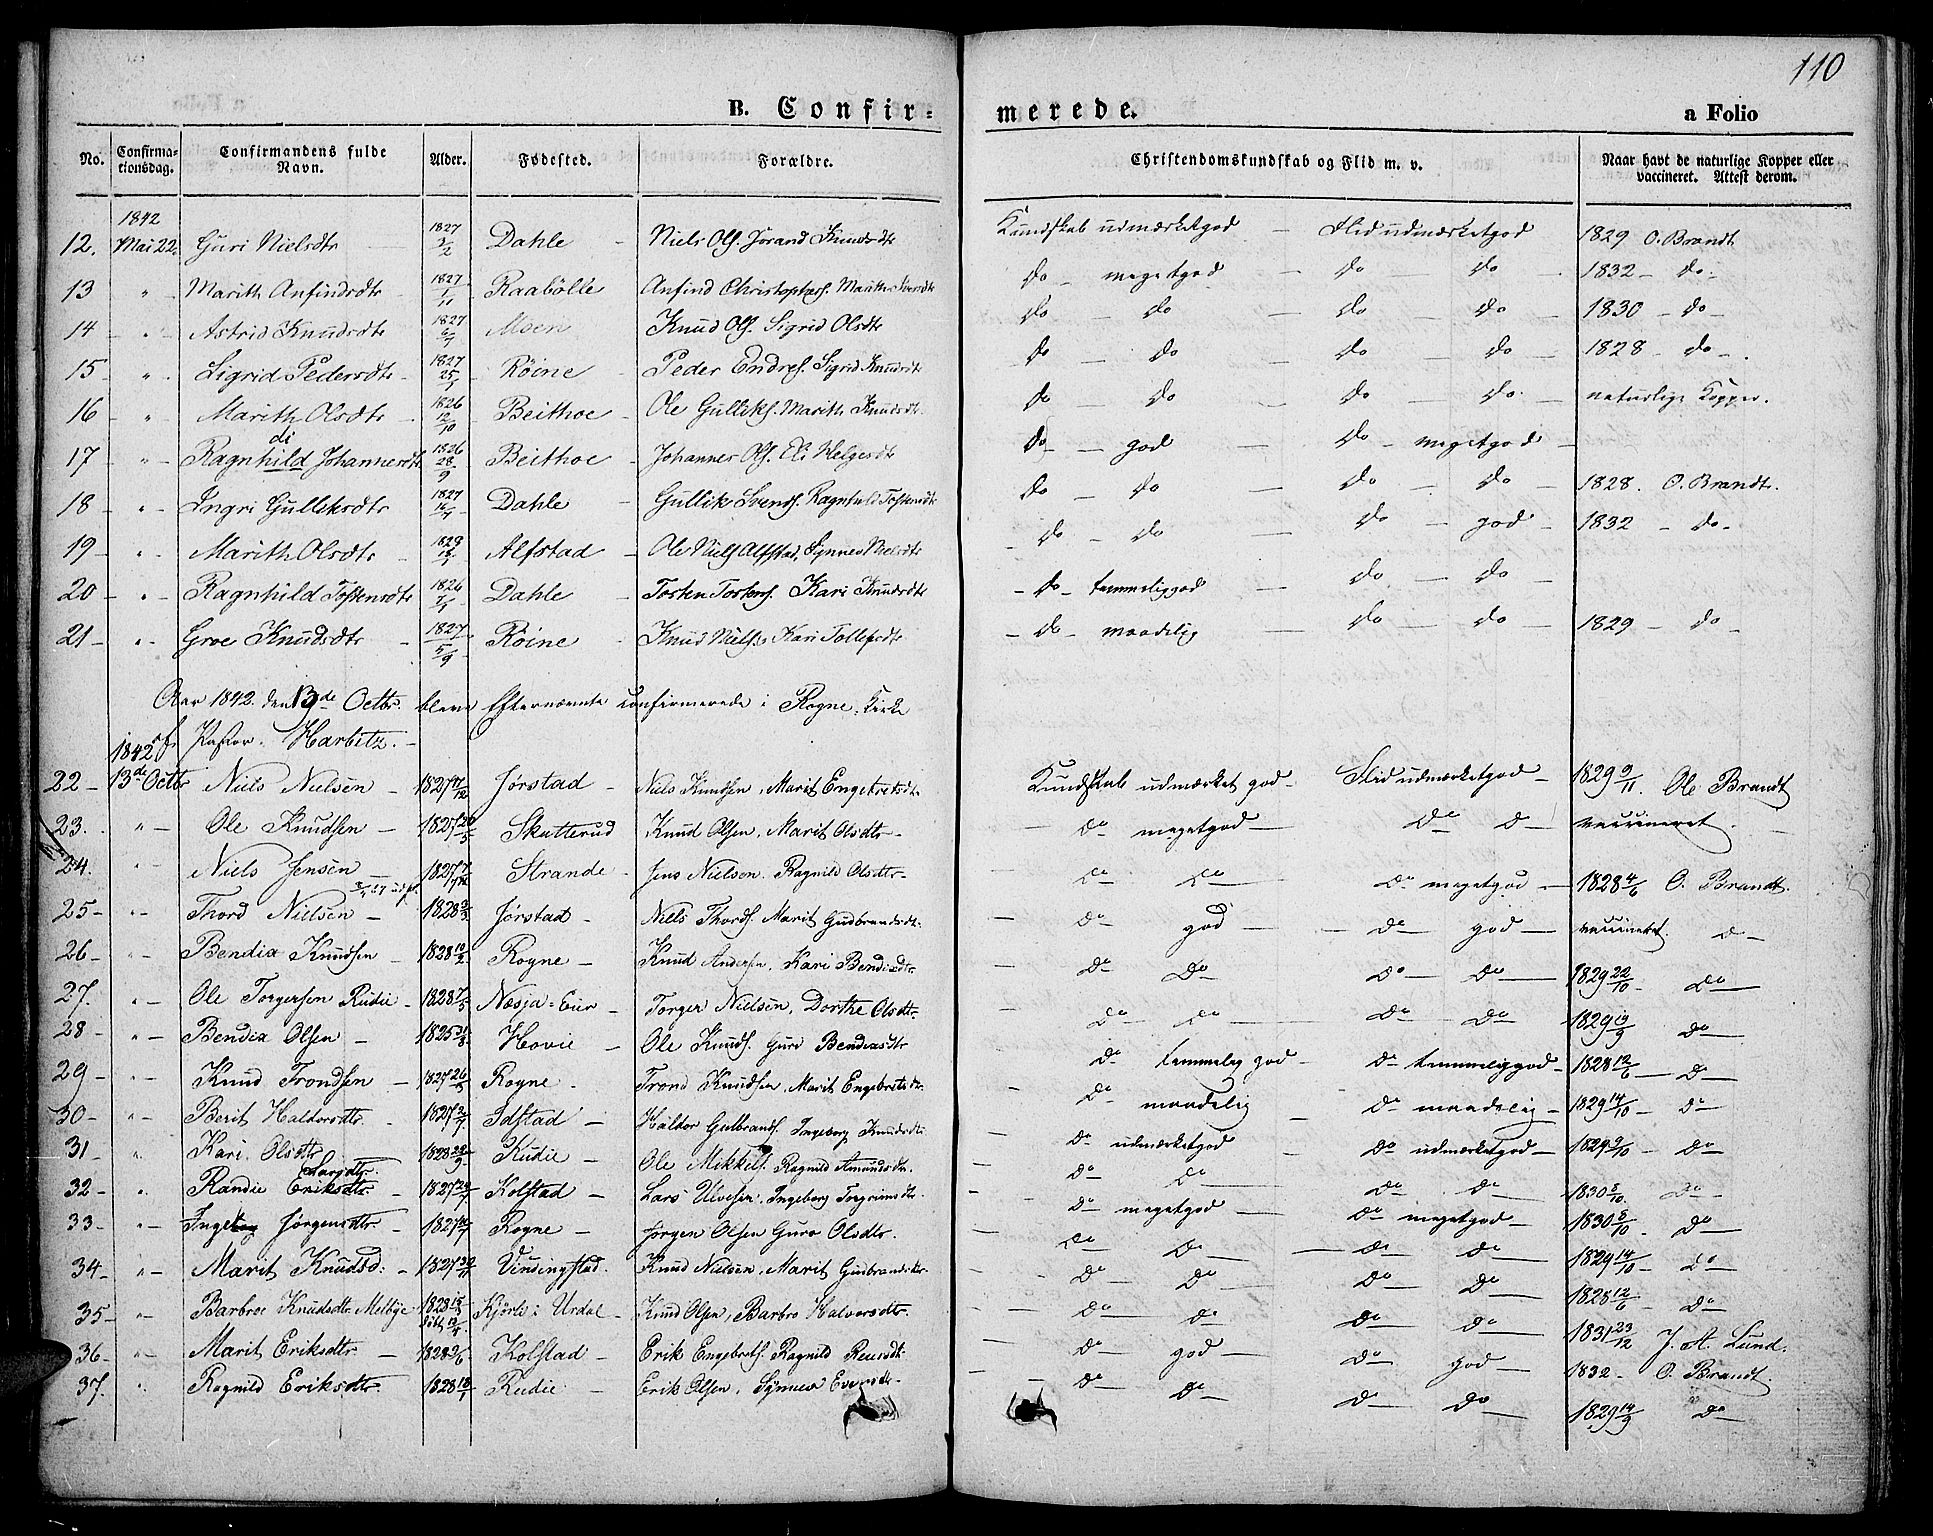 110
B. Confirmerede. a Folio
No. Confirmationsdag. Confirmandens fulde Navn. Alder. Fødested. Forældre. Christendomskundskab og Flid m. v. Naar havt de naturlige Kopper eller vaccineret. Attest derom.
1842
12. Mai 22. Guri Nielsdtr 1827 3/2 Dahle - Niels Ols. Jorand Knudsdtr Kundskab udmærketgod - Flid udmærketgod 1829 O. Brandt
13 " - Marith Anfindsdtr 1827 1/11 Raabölle Anfind Christophers. Marith Iversdtr do - megetgod - do - do 1832 - do -
14 - " - Astrid Knudsdtr 1827 6/7 Moen Knud Ols. Sigrid Olsdtr do - do - do - do 1830 - do -
15 - " - Sigrid Pedersdtr - 1827 25/7 - Röine - Peder Endres. Sigrid Knudsdtr do - do - do - do 1828 - do -
16 - " Marith Olsdtr - 1826 12/10 - Beithoe - Ole Gulliks. Marith Knudsdtr do - do - do - do naturlige Kopper.
17 - " - Ragndi Johannesdtr 1826 28/9 Beithoe - Johannes Ols. Eli Helgesdtr do - god - do - megetgod -
18 - " - Ingri Gulleksdtr 1827 16/7 Dahle - Gullik Svends. Ragnhild Tostensdtr do - do - do - do - 1828. O. Brandt.
19 - " - Marith Olsdtr - 1829 Alfstad - Ole Niels Alfstad, Synnev Nielsdtr - do - do do - god - 1832 - do -
20 - " - Ragnhild Tostensdtr 1826 Dahle - Tosten Tostens. Kari Knudsdtr - do - temmeliggod - do - do -
21 - " - Groe Knudsdtr - 1827 5/9 Röine - Knud Niels. Kari Tollefsdtr - do - maadelig - do - do - 1829 - do -
Aar 1842. den 13de Octbr. bleve Efternævnte confirmerede i Rogne Kirke
af Pastor. Harbitz. -
1842
22 - 13de Octbr Niels Nielsen - 1827 Jørstad - Niels Knudsen, Marit Engebretsdtr Kundskab udmærket god - Flid udmærketgod - 1829 9/11. Ole Brandt
23. " - Ole Knudsen - 1827 20/5 Skatterud Knud Olsen, Marit Olsdtr - - do megetgod - Do D - vaccineret.
24. " Niels Jensen - 1827 Strande - Jens Nielsen. Ragnild Olsdtr - do do - Do megetgod - 1828 4/6 O. Brandt.
25 - " - Thord Nielsen - 1828 3/3 Jørstad - Niels Thords. Marit Gudbrandsdtr - Do god - - do - god - vaccineret. d -
26 - " - Bendix Knudsen - 1828 10/2 Rogne - Knud Andersen, Kari Bendixdtr Do Do - Do - Do - 1829 22/10 - Do -
27. " - Ole Torgersen Rudie - 1828 7/5 Næsja = Eier - Torger Nielsen, Dorthe Olsdtr - Do Do - Do - Do - 1829 19/9 Do -
28 - " - Bendix Olsen - 1825 Hovie - Ole Knuds. Guro Bendixsdtr Do temmelig god - Do temmeliggod - 1828 12/6 - D -
29 - " - Knud Trondsen - 1827 26/5 Rogne - Trond Knudsen, Marit Engebretsdtr - Do maadelig - Do maadelig - 1829 14/10 - Do
30 - " - Berit Haldorsdtr - 1827 3/7 Idstad - Haldor Gulbrands. Ingeborg Knudsdtr Do udmærketgod Do udmærketgod - 1829 9/10 - Do
31 " Kari. Olsdtr 1828 Rudie - Ole Mikkels. Ragnild Amundsdtr. - Do Do - Do Do - 1830 8/10. Do -
32 - " . Randie Larsdtr. - 1827 Kolstad - Lars Ulvesen, Ingeborg Torgrimsdtr - - Do megetgod - Do megetgod - 1830 8/10. Do -
33 - " - Ingebor Jørgensdtr. - 1827 Rogne - Jørgen Olsen Guro Olsdtr. - Do Do - - Do Do - 1829 14/10 - Do -
34 - " - Marit Knudsd: - 1827 30/11 Vindingstad. Knud Nielsen, Marit Gudbrandsdtr. - Do Do - Do Do - 1828 12/6 - Do -
35 - " Barbroe Knudsdtr. Melbye 1828 15/3 Kjörli i Urdal Knud Olsen, Barbro Halvorsdtr - Do Do - Do Do - 1831 23/12 J. A. Lund.
36 - " - Marit Eriksdtr. - 1828 Kolstad - Erik Engebrets. Ragnild - Do god - Do god - 1832 - O. Brandt.
37. " . Ragnild Eriksdtr. 1828 18/1 Rudie - Erik Olsen, Synneva - Do Do - Do Do - 1829 14/9 Do -